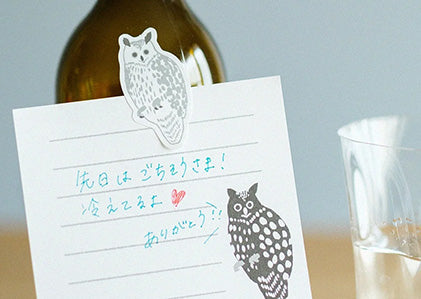 先日はごちそうさま!
冷えてるよ♥
ありがとう!!